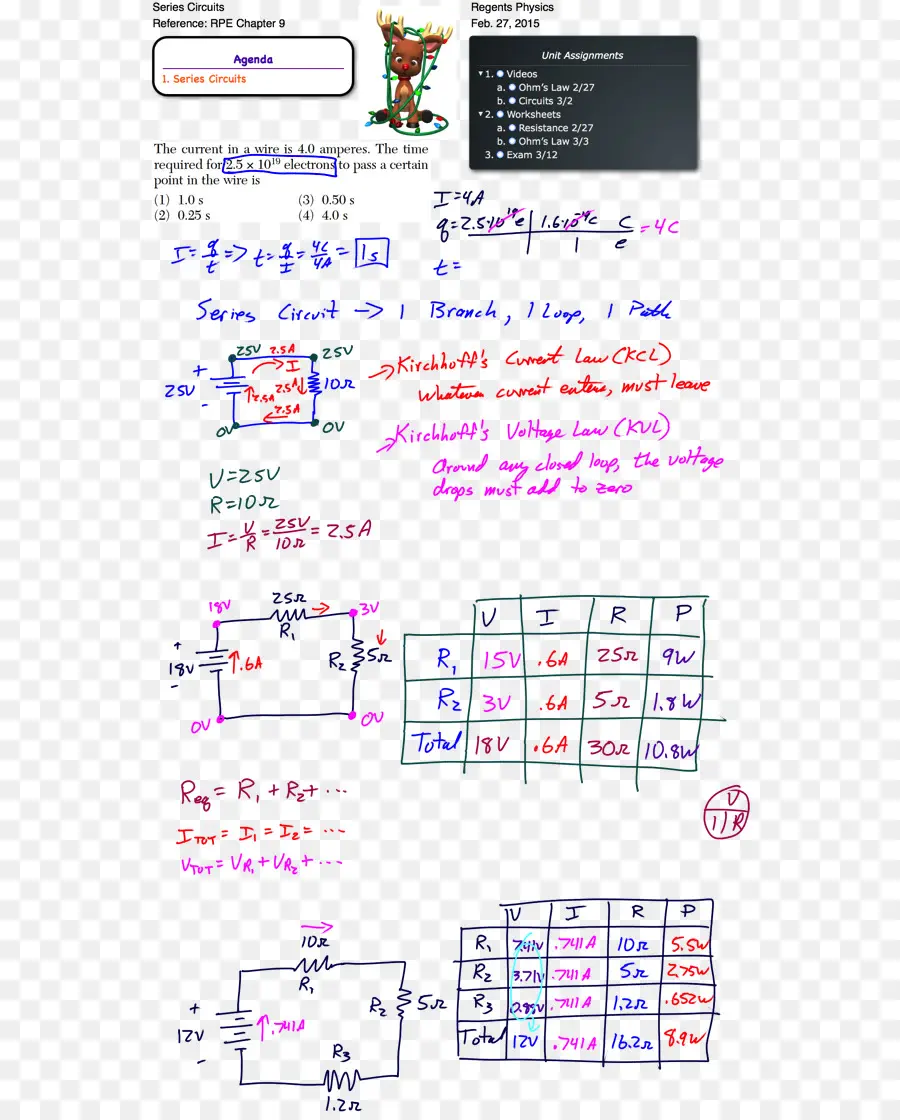 Series Circuits
Reference: RPE Chapter 9
Regents Physics
Feb. 27, 2015
Agenda
1. Series Circuits
Unit Assignments
1. Videos
a. Ohm's Law 2/27
b. Circuits 3/2
2. Worksheets
a. Resistance 2/27
b. Ohm's Law 3/3
3. Exam 3/12
The current in a wire is 4.0 amperes. The time
required for 2.5 × 10¹⁹ electrons to pass a certain
point in the wire is
(1) 1.0 s
(3) 0.50 s
(2) 0.25 s
(4) 4.0 s
I=4A
q=2.5·10¹⁹e | 1.6·10⁻¹⁹C C = 4C
1 e
t=
I=q/t => t=q/I=4C/4A=1s
Series Circuit → 1 Branch, 1 Loop, 1 Path
25V 2.5A 25V
I
+
25V
-
2.5A
2.5A
10Ω
2.5A
0V
0V
→Kirchhoff's Current Law (KCL)
Whatever current enters, must leave
→Kirchhoff's Voltage Law (KVL)
Around any closed loop, the voltage
drops must add to zero
V=25V
R=10Ω
I=V/R=25V/10Ω=2.5A
25Ω
18V
3V
R₁
+
18V
-
.6A
R₂
5Ω
0V
0V
V I R P
R₁ 15V .6A 25Ω 9W
R₂ 3V .6A 5Ω 1.8W
Total 18V .6A 30Ω 10.8W
Req = R₁ + R₂ + ...
ITOT = I₁ = I₂ = ...
VTOT = VR₁ + VR₂ + ...
V
I R
10Ω
R₁
R₂
5Ω
+
12V
-
.741A
R₃
1.2Ω
V I R P
R₁ 7.41V .741A 10Ω 5.5W
R₂ 3.71V .741A 5Ω 2.75W
R₃ 0.89V .741A 1.2Ω .652W
Total 12V .741A 16.2Ω 8.9W